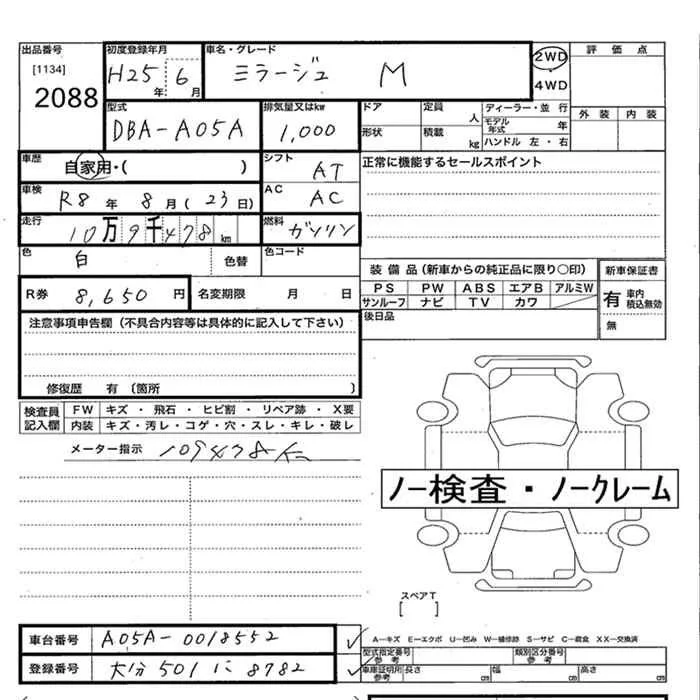 出品番号 初度登録年月 車名・グレード 評価点
[1134] H25年 6月 ミラージュ M 2WD
2088 ・4WD
型式 排気量又はkw ドア 定員 人 ディーラー・並行 外装 内装
DBA-A05A 1,000 形状 積載 kg モデル年式 年
ハンドル 左・右
車歴 自家用・( ) シフト AT 正常に機能するセールスポイント
車検 R8年 8月(23日) AC AC
走行 10万9千478km 燃料 ガソリン
色 白 色替 色コード
装備品(新車からの純正品に限り〇印) 新車保証書
R券 8,650円 名変期限 月 日 PS PW ABS エアB アルミW 有 車内積込無効
サンルーフ ナビ TV カワ
注意事項申告欄(不具合内容等は具体的に記入して下さい) 後日品 無
修復歴 有 (箇所 )
検査員記入欄 FW キズ・飛石・ヒビ割・リペア跡・X要
内装 キズ・汚レ・コゲ・穴・スレ・キレ・破レ
メーター指示 109478K
ノー検査・ノークレーム
スペアT
[ ]
車台番号 A05A-0018552 A―キズ E―エクボ U―凹み W―補修跡 S―サビ C―腐食 XX―交換済
型式指定番号 参考 類別区分番号 参考
登録番号 大分 501 に 8782 車庫証明用 参考 長さ cm 幅 cm 高さ cm